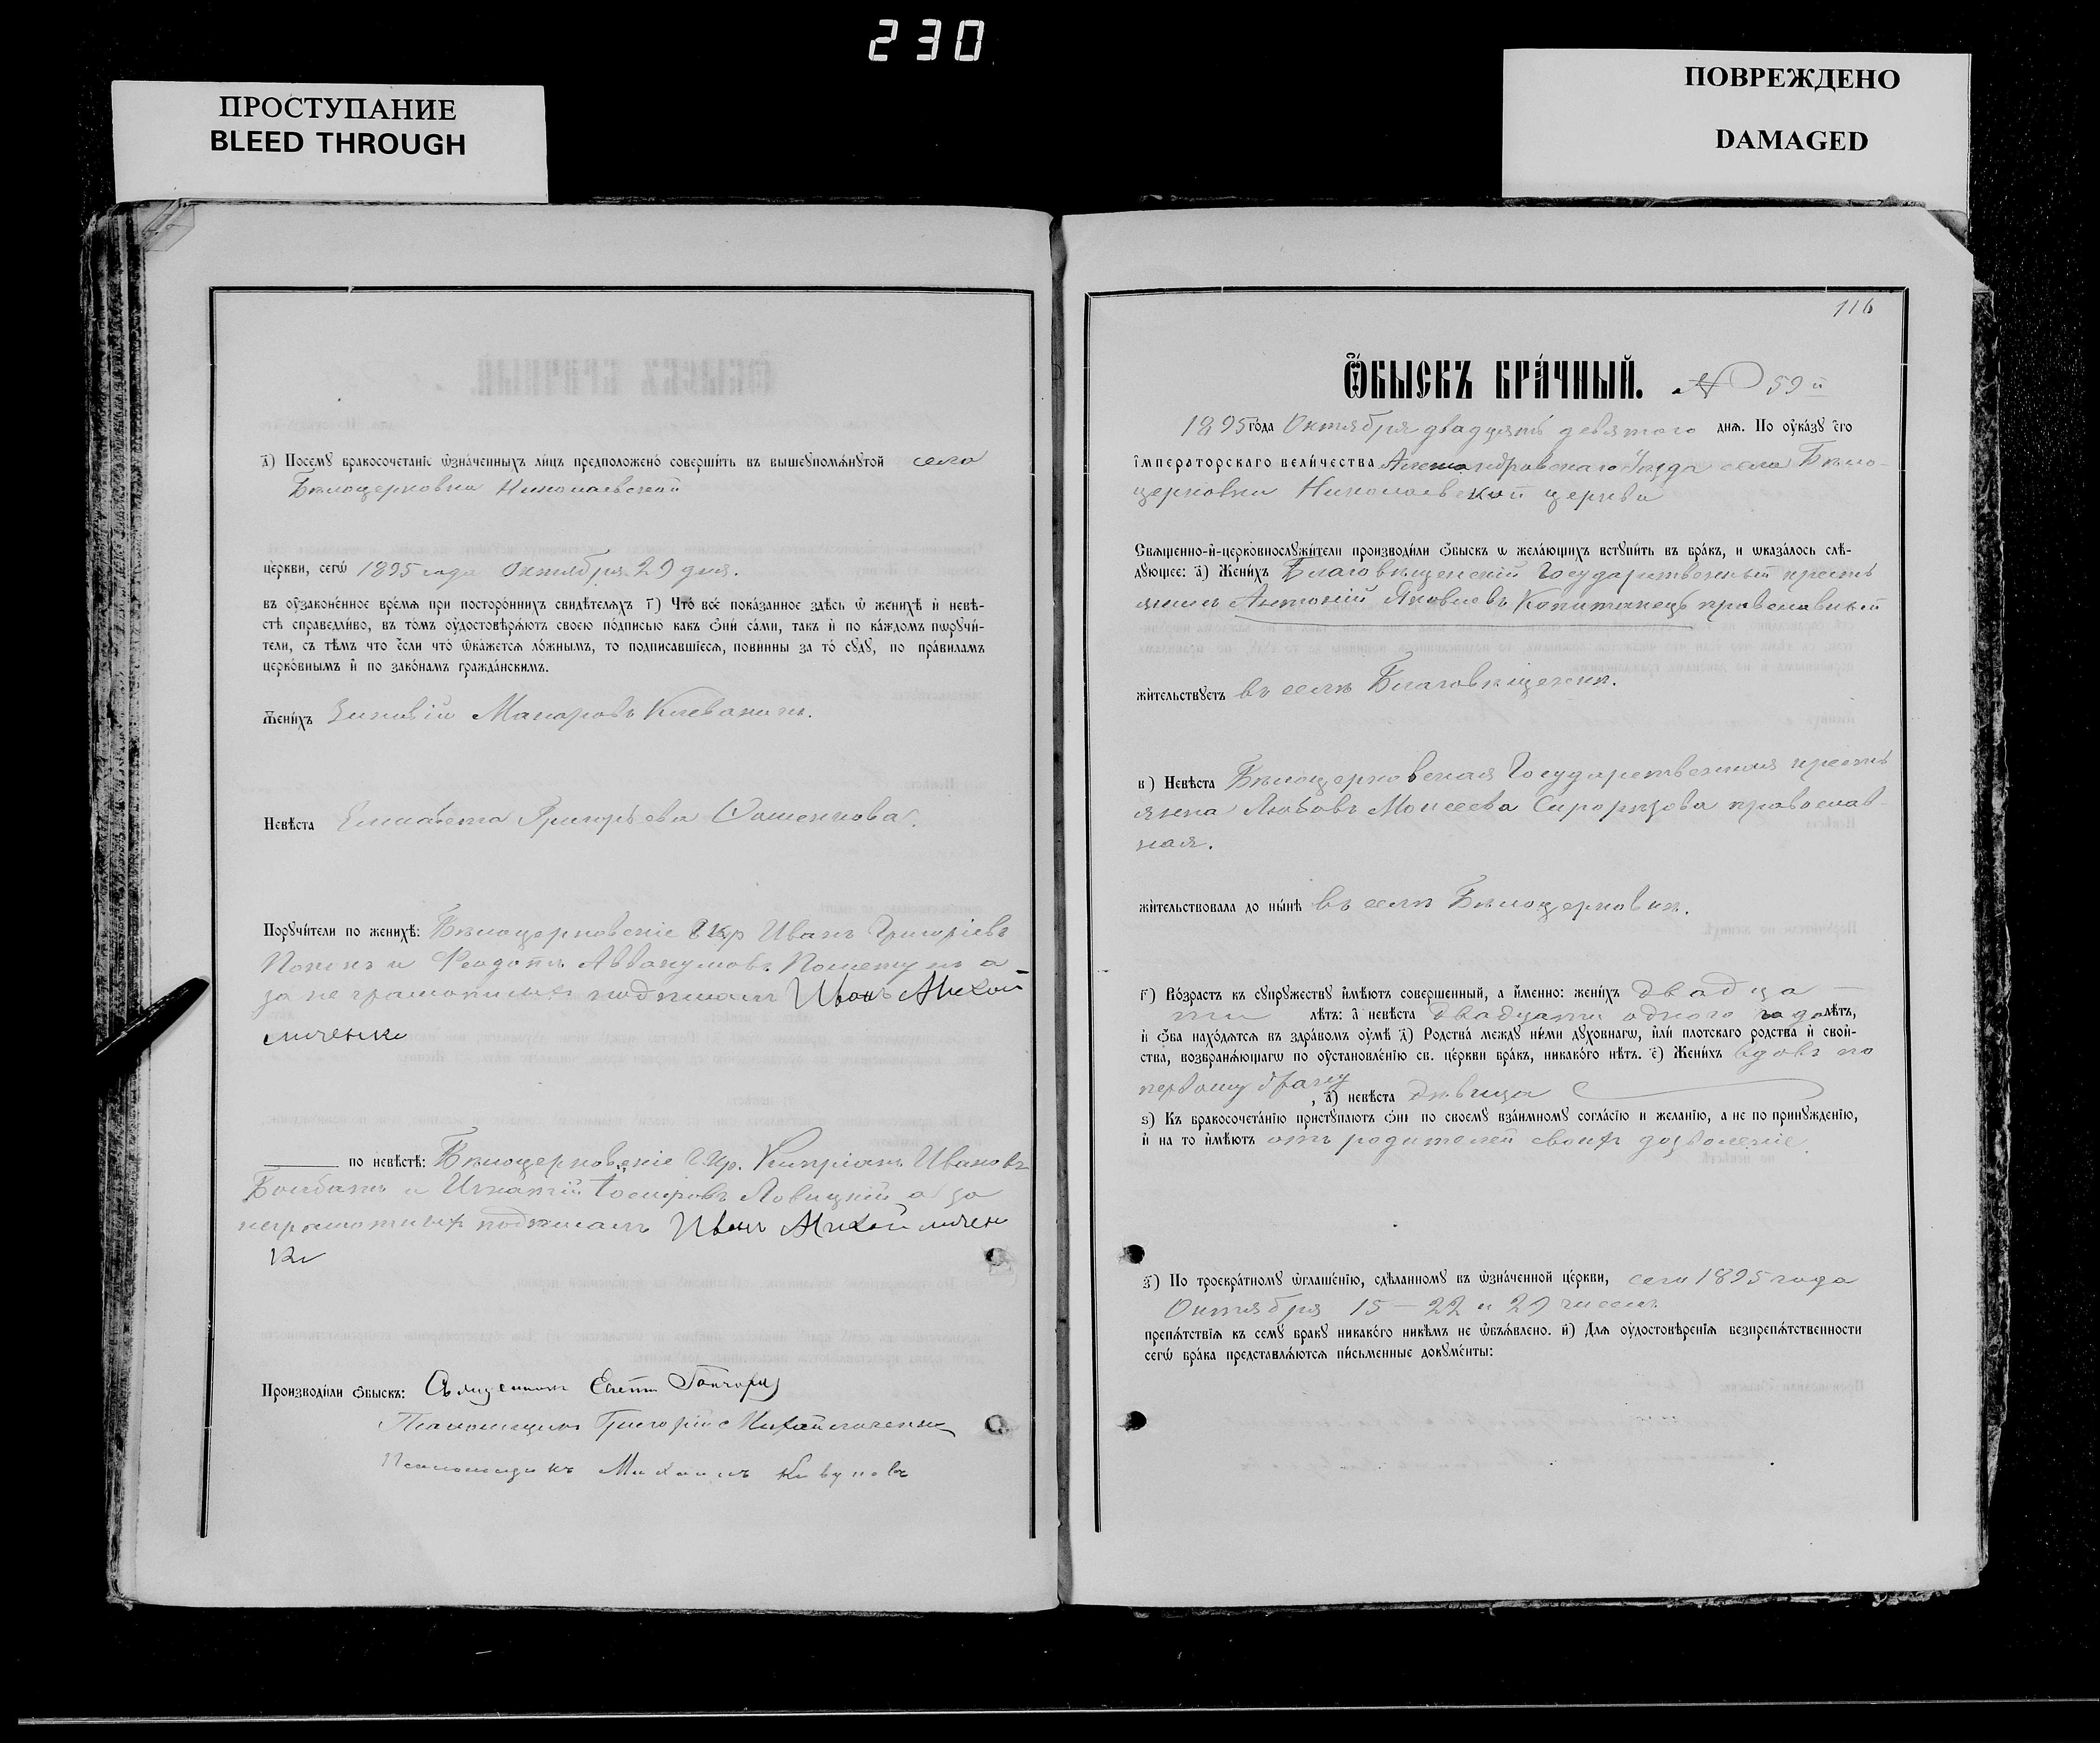 230
ПРОСТУПАНИЕ
BLEED THROUGH
ПОВРЕЖДЕНО
DAMAGED
а҃) Посемꙋ бракосочетанїе ѡзна́ченныхъ ли́цъ предположено́ соверши́ть въ вышеꙋпомѧ́нꙋтой села
Бѣлоцерковки Николаевской
це́ркви, сегѡ̀ 1895 года Октября 29 дня.
въ ᲂу҆зако́ненное вре́мѧ при посторо́ннихъ свидѣ́телѧхъ г҃) Что̀ всѐ пока́занное здѣ́сь ѡ҆ женихѣ̀ и҆ невѣ́-
стѣ справедли́во, въ то́мъ ᲂу҆достовѣрѧ́ютъ своею по́дписью какъ ѻ҆нѝ са́ми, такъ и҆ по ка́ждомъ порꙋчи́-
тели, съ тѣ́мъ что е҆́сли что̀ ѡ҆ка́жетсѧ ло́жнымъ, то подписавшїесѧ, пови́нны за то̀ сꙋдꙋ̀, по пра́виламъ
церко́внымъ и҆ по зако́намъ гражда́нскимъ.
Жени́хъ Зиновій Макаровъ Кіеванинъ.
Невѣ́ста Елисавета Григорьева
Порꙋчи́тели по женихѣ̀: Бѣлоцерковскіе Г. кр Иванъ Григоріевъ
и Феодотъ Аввакумовъ а
за неграмотныхъ подписалъ Иванъ Михай-
личенко
по невѣ́стѣ: Бѣлоцерковскіе Г. кр. Кипріанъ Ивановъ
и Игнатій Іосифовъ Ловицкій а за
неграмотныхъ подписалъ Иванъ Михайличен
ко
Производи́ли ѻ҆́быскъ: Священникъ Гончаровъ
Псаломщикъ Григорій Михайличенко
Псаломщикъ Михаилъ
116
Ѻ҆́БЫСКЪ БРА́ЧНЫЙ. № 59й
1895 го́да Октября двадцать девятого днѧ. По ᲂу҆ка́зꙋ є҆гѡ̀
і҆мператорскаго вели́чества Александровскаго уѣзда села Бѣло-
церковки Николаевской церкви
Свѧще́нно-и҆-церковнослꙋжи́тели производи́ли ѻ҆́быскъ ѡ҆ жела́ющихъ встꙋпи́ть въ бра́къ, и ѡ҆каза́лось слѣ́-
дꙋющее: а҃) Жени́хъ Благовѣщенскій Государственный кресть
янинъ Антоній Яковлевъ Капитанецъ православный
жи́тельствꙋетъ въ селѣ Благовѣщенкѣ.
в҃) Невѣ́ста Бѣлоцерковская Государственная кресть
янка Любовь Моисеева православ-
ная.
жи́тельствовала до ны́нѣ въ селѣ Бѣлоцерковкѣ.
г҃) Во́зрастъ къ сꙋпрꙋ́жествꙋ и҆мѣ́ютъ совершенный, а и҆́менно: жени́хъ двадца-
ти лѣтъ: а҆ невѣ́ста двадцати одного года лѣтъ,
и҆ ѻ҆́ба нахо́дѧтсѧ въ здра́вомъ ᲂу҆мѣ̀ д҃) Родства̀ междꙋ ни́ми дꙋхо́внагѡ, и҆лѝ плотскаго родства и҆ свой-
ства, возбранѧ́ющагѡ по ᲂу҆становле́нїю св. це́ркви бра́къ, никако́го нѣ́тъ. є҃) Жени́хъ вдовъ по
первому браку, а҆) невѣ́ста дѣвица
ѕ҃) Къ бракосочета́нїю пристꙋпа́ютъ ѻ҆нѝ по своемꙋ̀ взаи́мномꙋ согла́сїю и жела́нїю, а не по принꙋжде́нїю,
и҆ на то и҆мѣ́ютъ отъ родителей своихъ дозволеніе.
з҃) По троекра́тномꙋ ѡ҆глаше́нїю, сдѣ́ланномꙋ въ ѡ҆зна́ченной це́ркви, сего 1895 года
Октября 15 – 22 и 29 чиселъ
препѧ́тствїѧ къ семꙋ̀ бракꙋ никако́го никѣ́мъ не ѡ҆б̾ѧ́влено. и҃) Длѧ ᲂу҆достовѣ́ренїѧ безпрепѧ́тственности
сегѡ̀ бра́ка представлѧ́ютсѧ пи́сьменные докꙋме́нты: